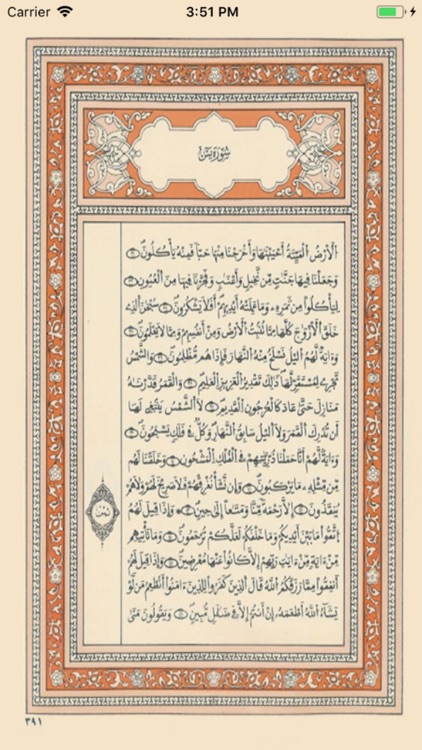 Carrier 3:51 PM
سُورَةُ يٰسٓ
الْأَرْضُ الْمَيْتَةُ أَحْيَيْنَٰهَا وَأَخْرَجْنَا مِنْهَا حَبًّا فَمِنْهُ يَأْكُلُونَ
وَجَعَلْنَا فِيهَا جَنَّٰتٍ مِنْ نَخِيلٍ وَأَعْنَٰبٍ وَفَجَّرْنَا فِيهَا مِنَ الْعُيُونِ
لِيَأْكُلُوا مِنْ ثَمَرِهِ وَمَا عَمِلَتْهُ أَيْدِيهِمْ أَفَلَا يَشْكُرُونَ سُبْحَٰنَ الَّذِي
خَلَقَ الْأَزْوَٰجَ كُلَّهَا مِمَّا تُنْبِتُ الْأَرْضُ وَمِنْ أَنْفُسِهِمْ وَمِمَّا لَا يَعْلَمُونَ
وَءَايَةٌ لَهُمُ الَّيْلُ نَسْلَخُ مِنْهُ النَّهَارَ فَإِذَا هُمْ مُظْلِمُونَ وَالشَّمْسُ
تَجْرِي لِمُسْتَقَرٍّ لَهَا ذَٰلِكَ تَقْدِيرُ الْعَزِيزِ الْعَلِيمِ وَالْقَمَرَ قَدَّرْنَٰهُ
مَنَازِلَ حَتَّىٰ عَادَ كَالْعُرْجُونِ الْقَدِيمِ لَا الشَّمْسُ يَنْبَغِي لَهَا
أَنْ تُدْرِكَ الْقَمَرَ وَلَا الَّيْلُ سَابِقُ النَّهَارِ وَكُلٌّ فِي فَلَكٍ يَسْبَحُونَ
وَءَايَةٌ لَهُمْ أَنَّا حَمَلْنَا ذُرِّيَّتَهُمْ فِي الْفُلْكِ الْمَشْحُونِ وَخَلَقْنَا لَهُمْ
مِنْ مِثْلِهِ مَا يَرْكَبُونَ وَإِنْ نَشَأْ نُغْرِقْهُمْ فَلَا صَرِيخَ لَهُمْ وَلَا هُمْ
يُنْقَذُونَ إِلَّا رَحْمَةً مِنَّا وَمَتَٰعًا إِلَىٰ حِينٍ وَإِذَا قِيلَ لَهُمُ
اتَّقُوا مَا بَيْنَ أَيْدِيكُمْ وَمَا خَلْفَكُمْ لَعَلَّكُمْ تُرْحَمُونَ وَمَا تَأْتِيهِمْ
مِنْ ءَايَةٍ مِنْ ءَايَٰتِ رَبِّهِمْ إِلَّا كَانُوا عَنْهَا مُعْرِضِينَ وَإِذَا قِيلَ لَهُمْ
أَنْفِقُوا مِمَّا رَزَقَكُمُ اللَّهُ قَالَ الَّذِينَ كَفَرُوا لِلَّذِينَ ءَامَنُوا أَنُطْعِمُ مَنْ لَوْ
يَشَاءُ اللَّهُ أَطْعَمَهُ إِنْ أَنْتُمْ إِلَّا فِي ضَلَٰلٍ مُبِينٍ وَيَقُولُونَ مَتَىٰ
٣٩١